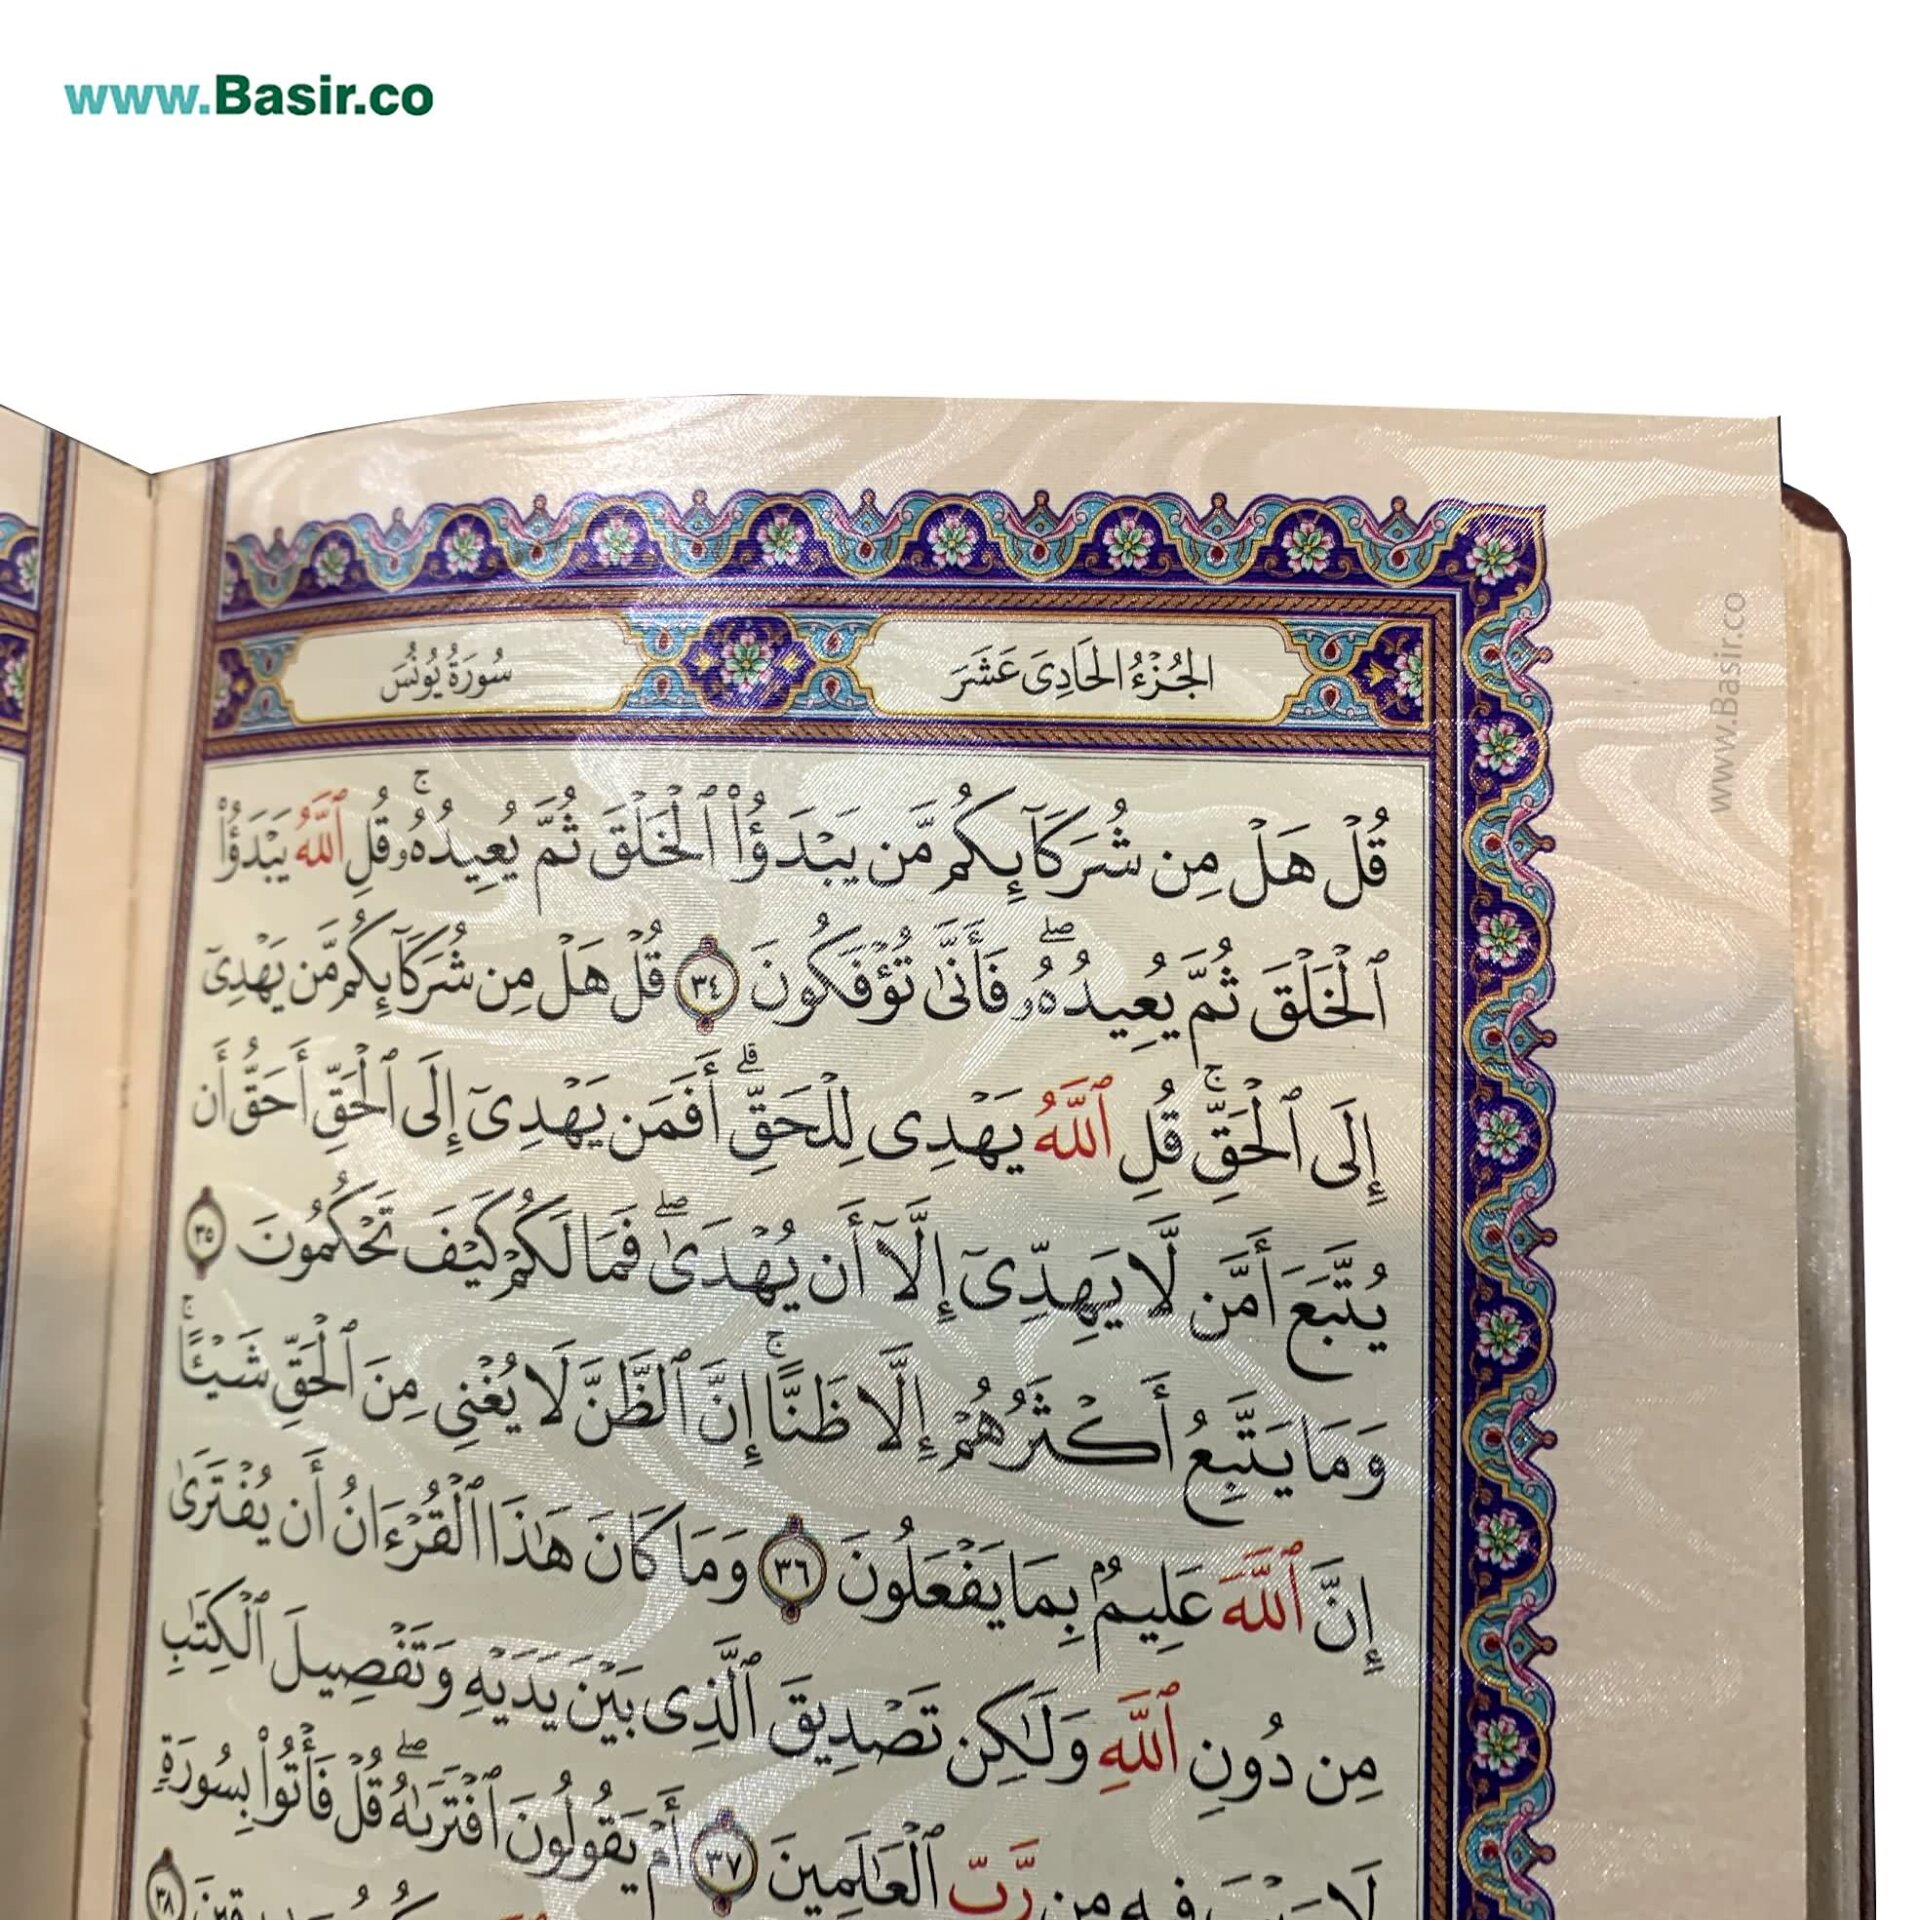 www.Basir.co
الجُزْءُ الحَادِيَ عَشَرَ
سُورَةُ يُونُسَ
www.Basir.co
قُلْ هَلْ مِن شُرَكَآئِكُم مَّن يَبْدَؤُاْ ٱلْخَلْقَ ثُمَّ يُعِيدُهُۥۚ قُلِ ٱللَّهُ يَبْدَؤُاْ
ٱلْخَلْقَ ثُمَّ يُعِيدُهُۥۖ فَأَنَّىٰ تُؤْفَكُونَ ٣٤ قُلْ هَلْ مِن شُرَكَآئِكُم مَّن يَهْدِىٓ
إِلَى ٱلْحَقِّۚ قُلِ ٱللَّهُ يَهْدِى لِلْحَقِّۗ أَفَمَن يَهْدِىٓ إِلَى ٱلْحَقِّ أَحَقُّ أَن
يُتَّبَعَ أَمَّن لَّا يَهِدِّىٓ إِلَّآ أَن يُهْدَىٰۖ فَمَا لَكُمْ كَيْفَ تَحْكُمُونَ ٣٥
وَمَا يَتَّبِعُ أَكْثَرُهُمْ إِلَّا ظَنًّاۚ إِنَّ ٱلظَّنَّ لَا يُغْنِى مِنَ ٱلْحَقِّ شَيْـًٔاۚ
إِنَّ ٱللَّهَ عَلِيمٌۢ بِمَا يَفْعَلُونَ ٣٦ وَمَا كَانَ هَٰذَا ٱلْقُرْءَانُ أَن يُفْتَرَىٰ
مِن دُونِ ٱللَّهِ وَلَٰكِن تَصْدِيقَ ٱلَّذِى بَيْنَ يَدَيْهِ وَتَفْصِيلَ ٱلْكِتَٰبِ
لَا رَيْبَ فِيهِ مِن رَّبِّ ٱلْعَٰلَمِينَ ٣٧ أَمْ يَقُولُونَ ٱفْتَرَىٰهُۖ قُلْ فَأْتُواْ بِسُورَةٍ
٣٨